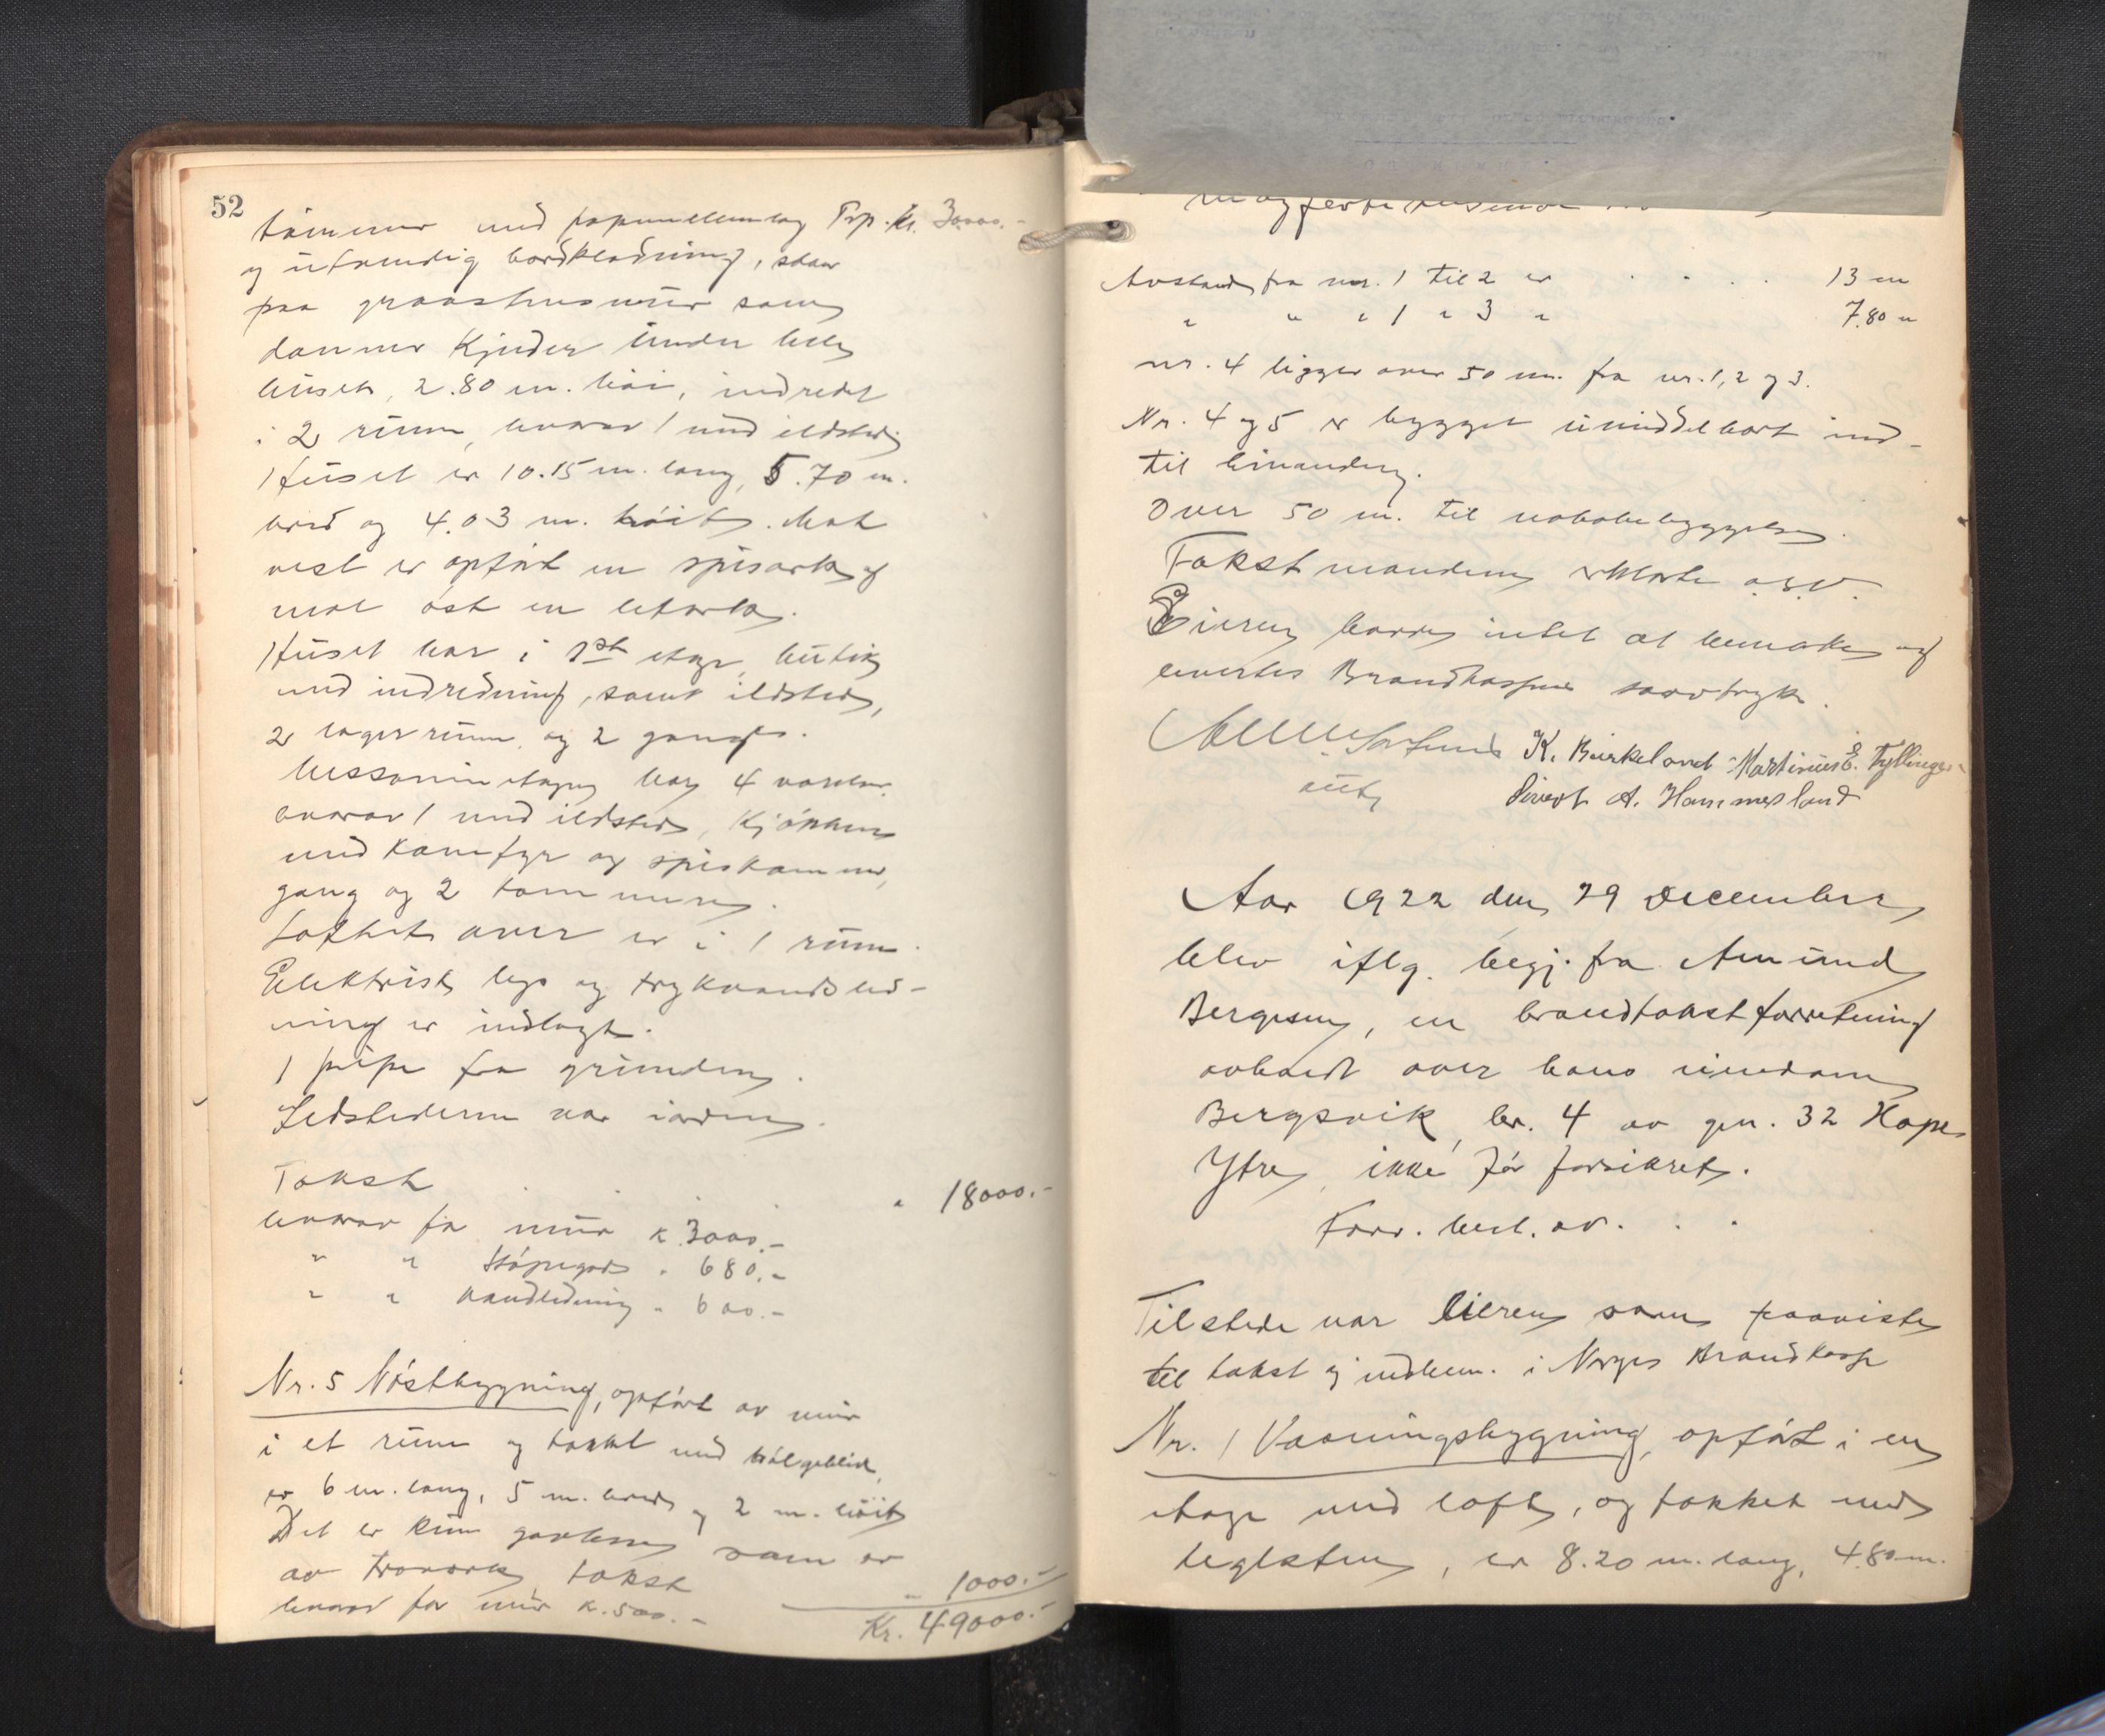 52
tømmer med papmellemlag Trp. kr. 30000.-
og utvendig bordklædning, staar
paa graastensmur som
danner kjelder under hele
huset, 2.80 m. høi, indredet
i 2 rum, hvorav 1 med ildsted
Huset er 10.15 m. lang, 5.70 m.
bred og 4.03 m. høit. Mot
vest er opført en spisark og
mot øst en letark.
Huset har i 1ste etage butik
med indredning, samt ildsted,
2 lagerrum og 2 gange.
Messanin etagen har 4 værelser
hvorav 1 med ildsted, kjøkken
med komfyr og spiskammer,
gang og 2 kammere.
Loftet over er i 1 rum.
Elektrisk lys og trykvandsled-
ning er indlagt.
1 pipe fra grunden.
Ildstederne var iorden.
Takst " 18000.-
hvorav for mur k. 3000.-
" " støpegods " 680.-
" " vandledning " 600.-
Nr. 5 Nøstbygning, opført av mur
i et rum og takket med bølgeblik,
er 6 m. lang, 5 m. bred og 2 m. høit
Det er kun gavlene som er
av træverk, takst " 1000.-
hvorav for mur k. 500.-
Kr. 49000.-
Avstand fra nr. 1 til 2 er . . . . 13 m
" " " 1 " 3 " 7.80 "
nr. 4 ligger over 50 m. fra nr. 1, 2 og 3.
Nr. 4 og 5 er bygget umiddelbart ind-
til hinanden.
Over 50 m. til nabobebyggelse.
Takstmændene erklærte o.s.v.
Eieren havde intet at bemerke og
leverte Brandkassens særtryk.
K. Birkeland Martinus E. Fyllingsn
Sivert A. Hammersland
Aar 1922 den 29 December
blev iflg. begj. fra Amund
Bergesen, en brandtakstforretning
avholdt over hans eiendom
Bergsvik, br. 4 av gn. 32 Hope
Ytre, ikke før forsikret.
Forr. best. av. . .
Tilstede var eieren som paaviste
til takst og indlem. i Norges Brandkasse
Nr. 1 Vaaningsbygning, opført i en
etage med loft, og takket med
teglsten, er 8.20 m. lang, 4.80 m.